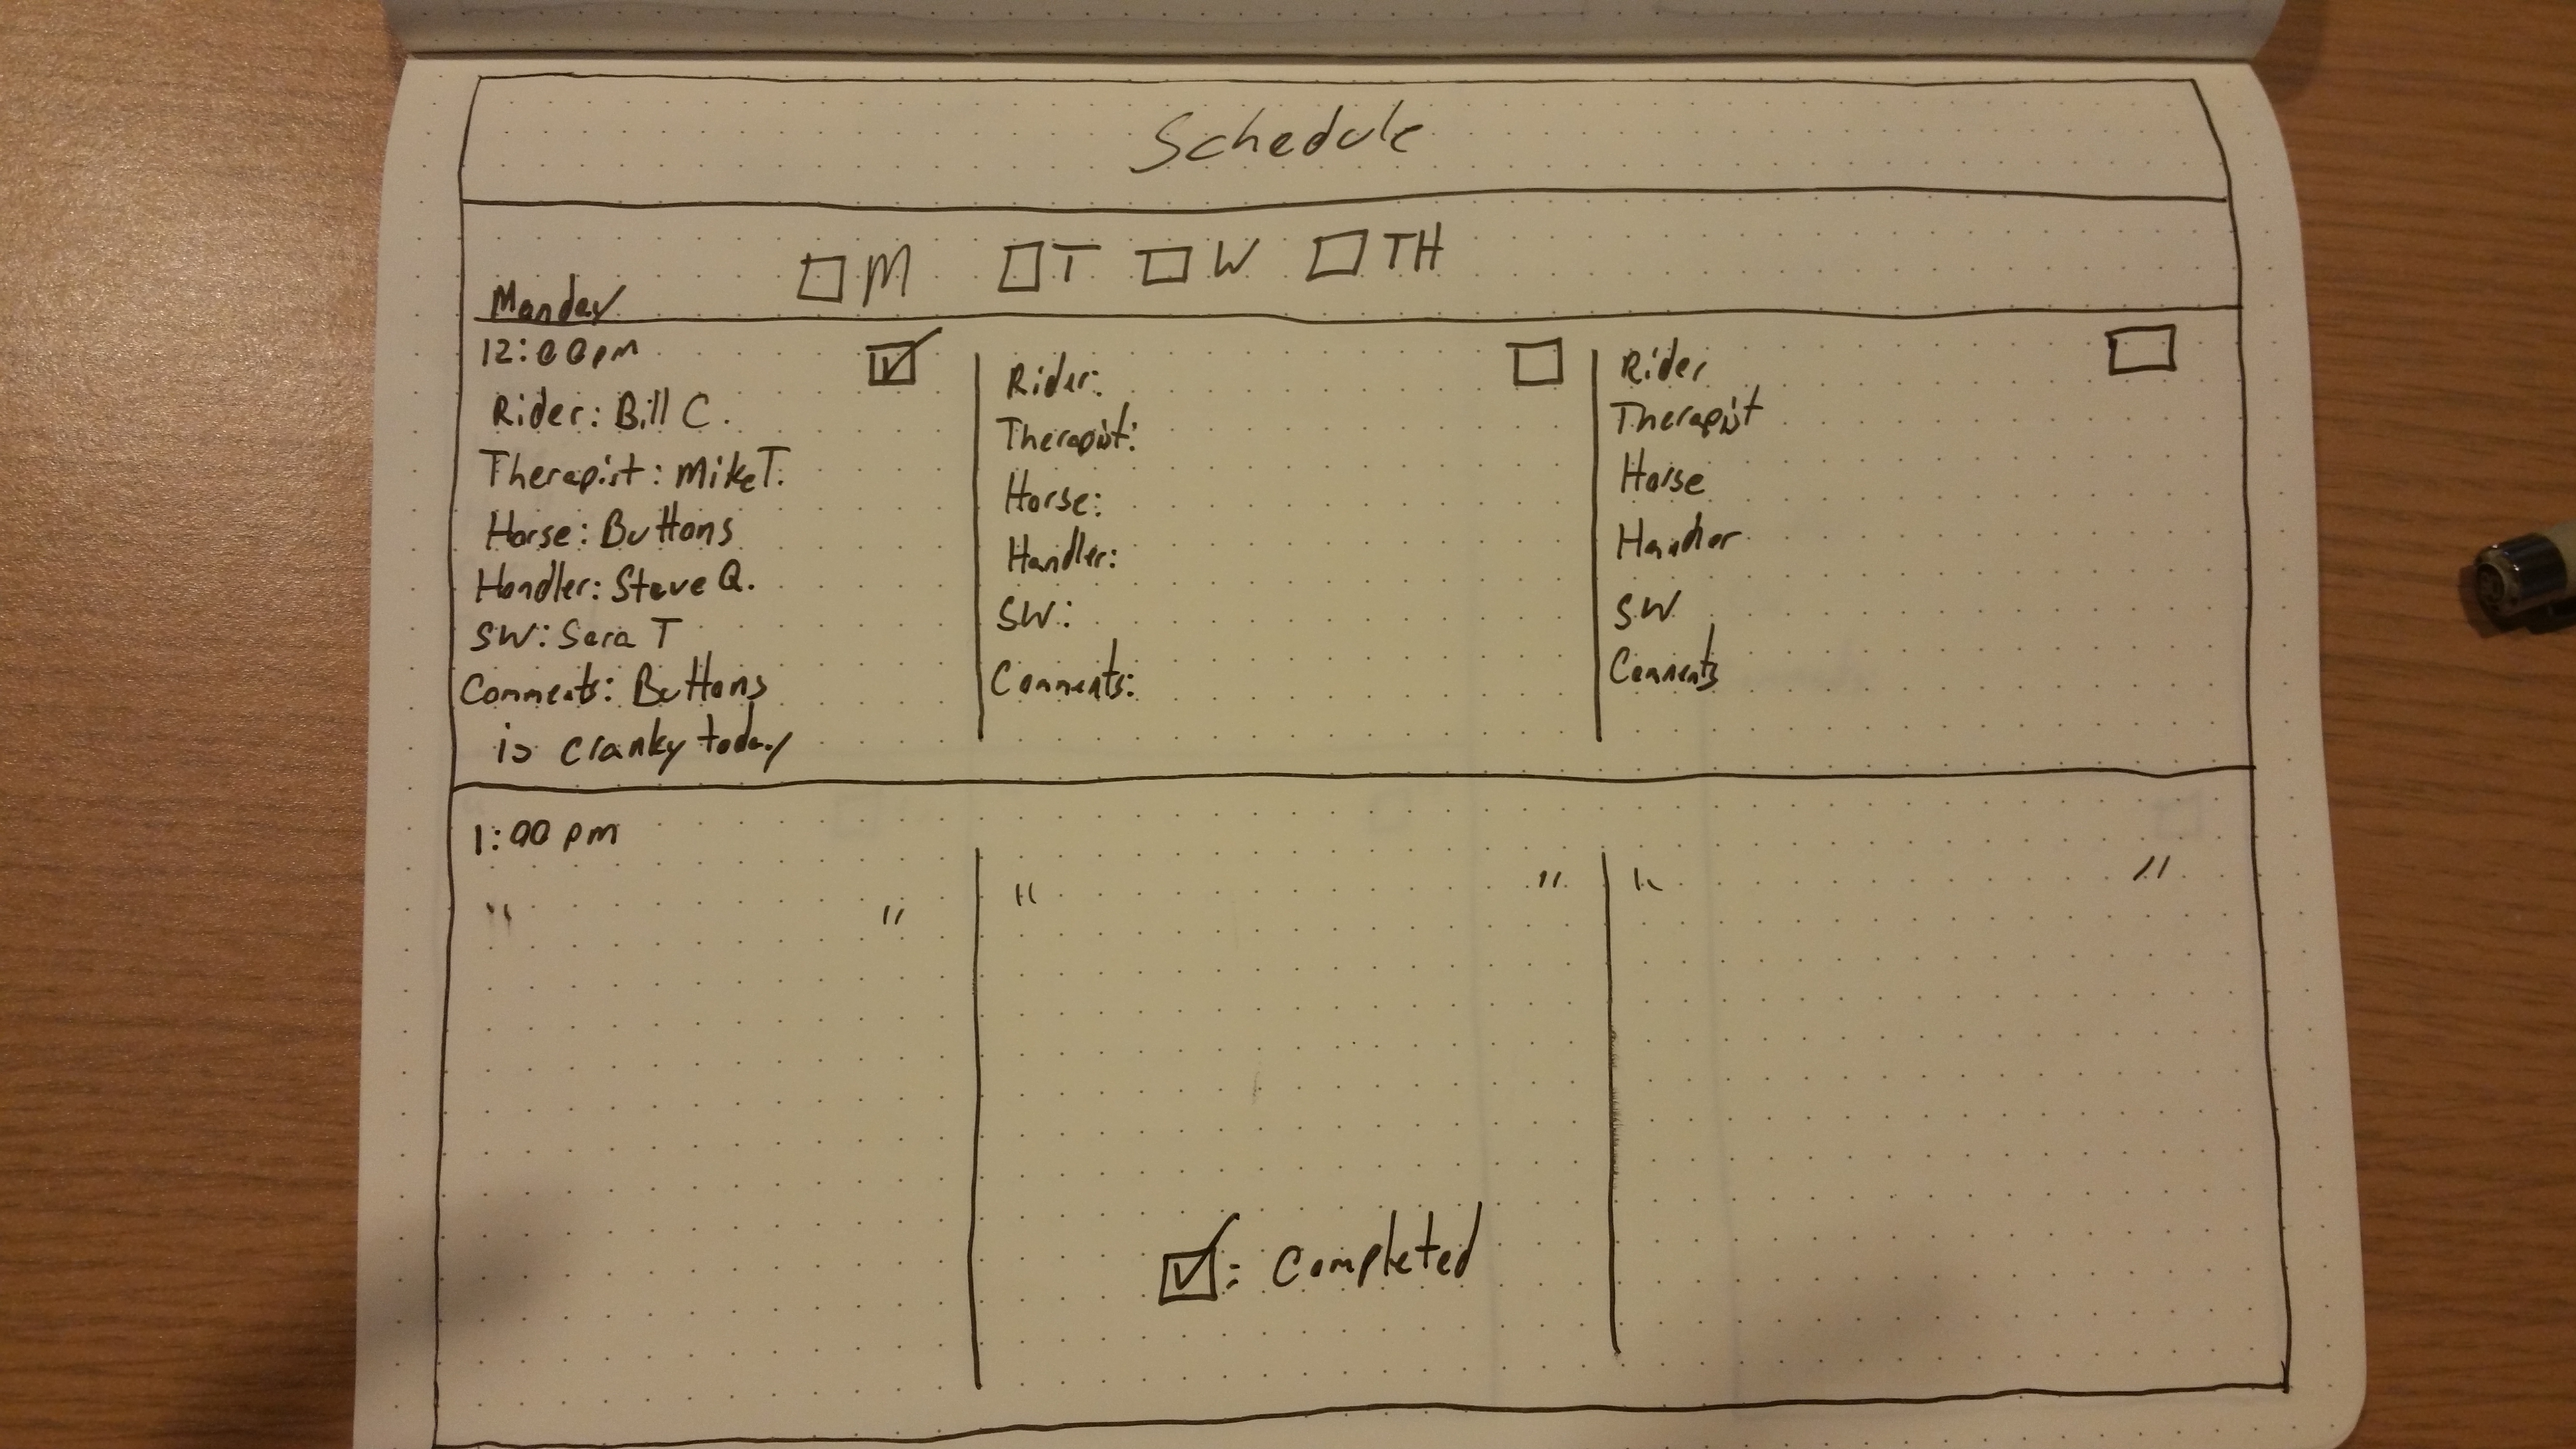 Schedule
☐ M ☐ T ☐ W ☐ TH
Monday
12:00pm ☑
Rider: Bill C.
Therapist: Mike T.
Horse: Buttons
Handler: Steve Q.
SW: Sara T
Comments: Buttons
is cranky today
Rider: ☐
Therapist:
Horse:
Handler:
SW:
Comments:
Rider ☐
Therapist
Horse
Handler
SW
Comments
1:00 pm
" "
" "
" "
☑: Completed